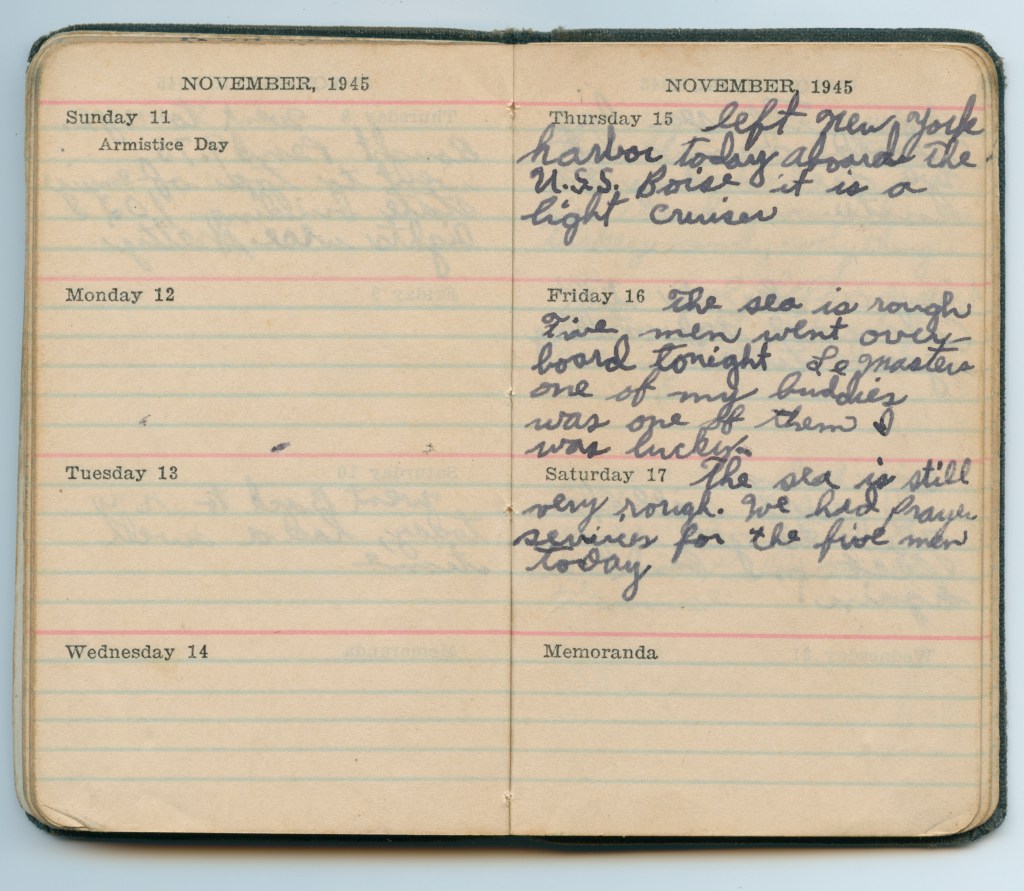 NOVEMBER, 1945
Sunday 11
Armistice Day
Monday 12
Tuesday 13
Wednesday 14
NOVEMBER, 1945
Thursday 15 left New York
harbor today aboard the
U.S.S. Boise it is a
light cruiser
Friday 16 The sea is rough
Five men went over
board tonight Le Masters
one of my buddies
was one of them I
was lucky.
Saturday 17 The sea is still
very rough. We had Prayer
services for the five men
today
Memoranda